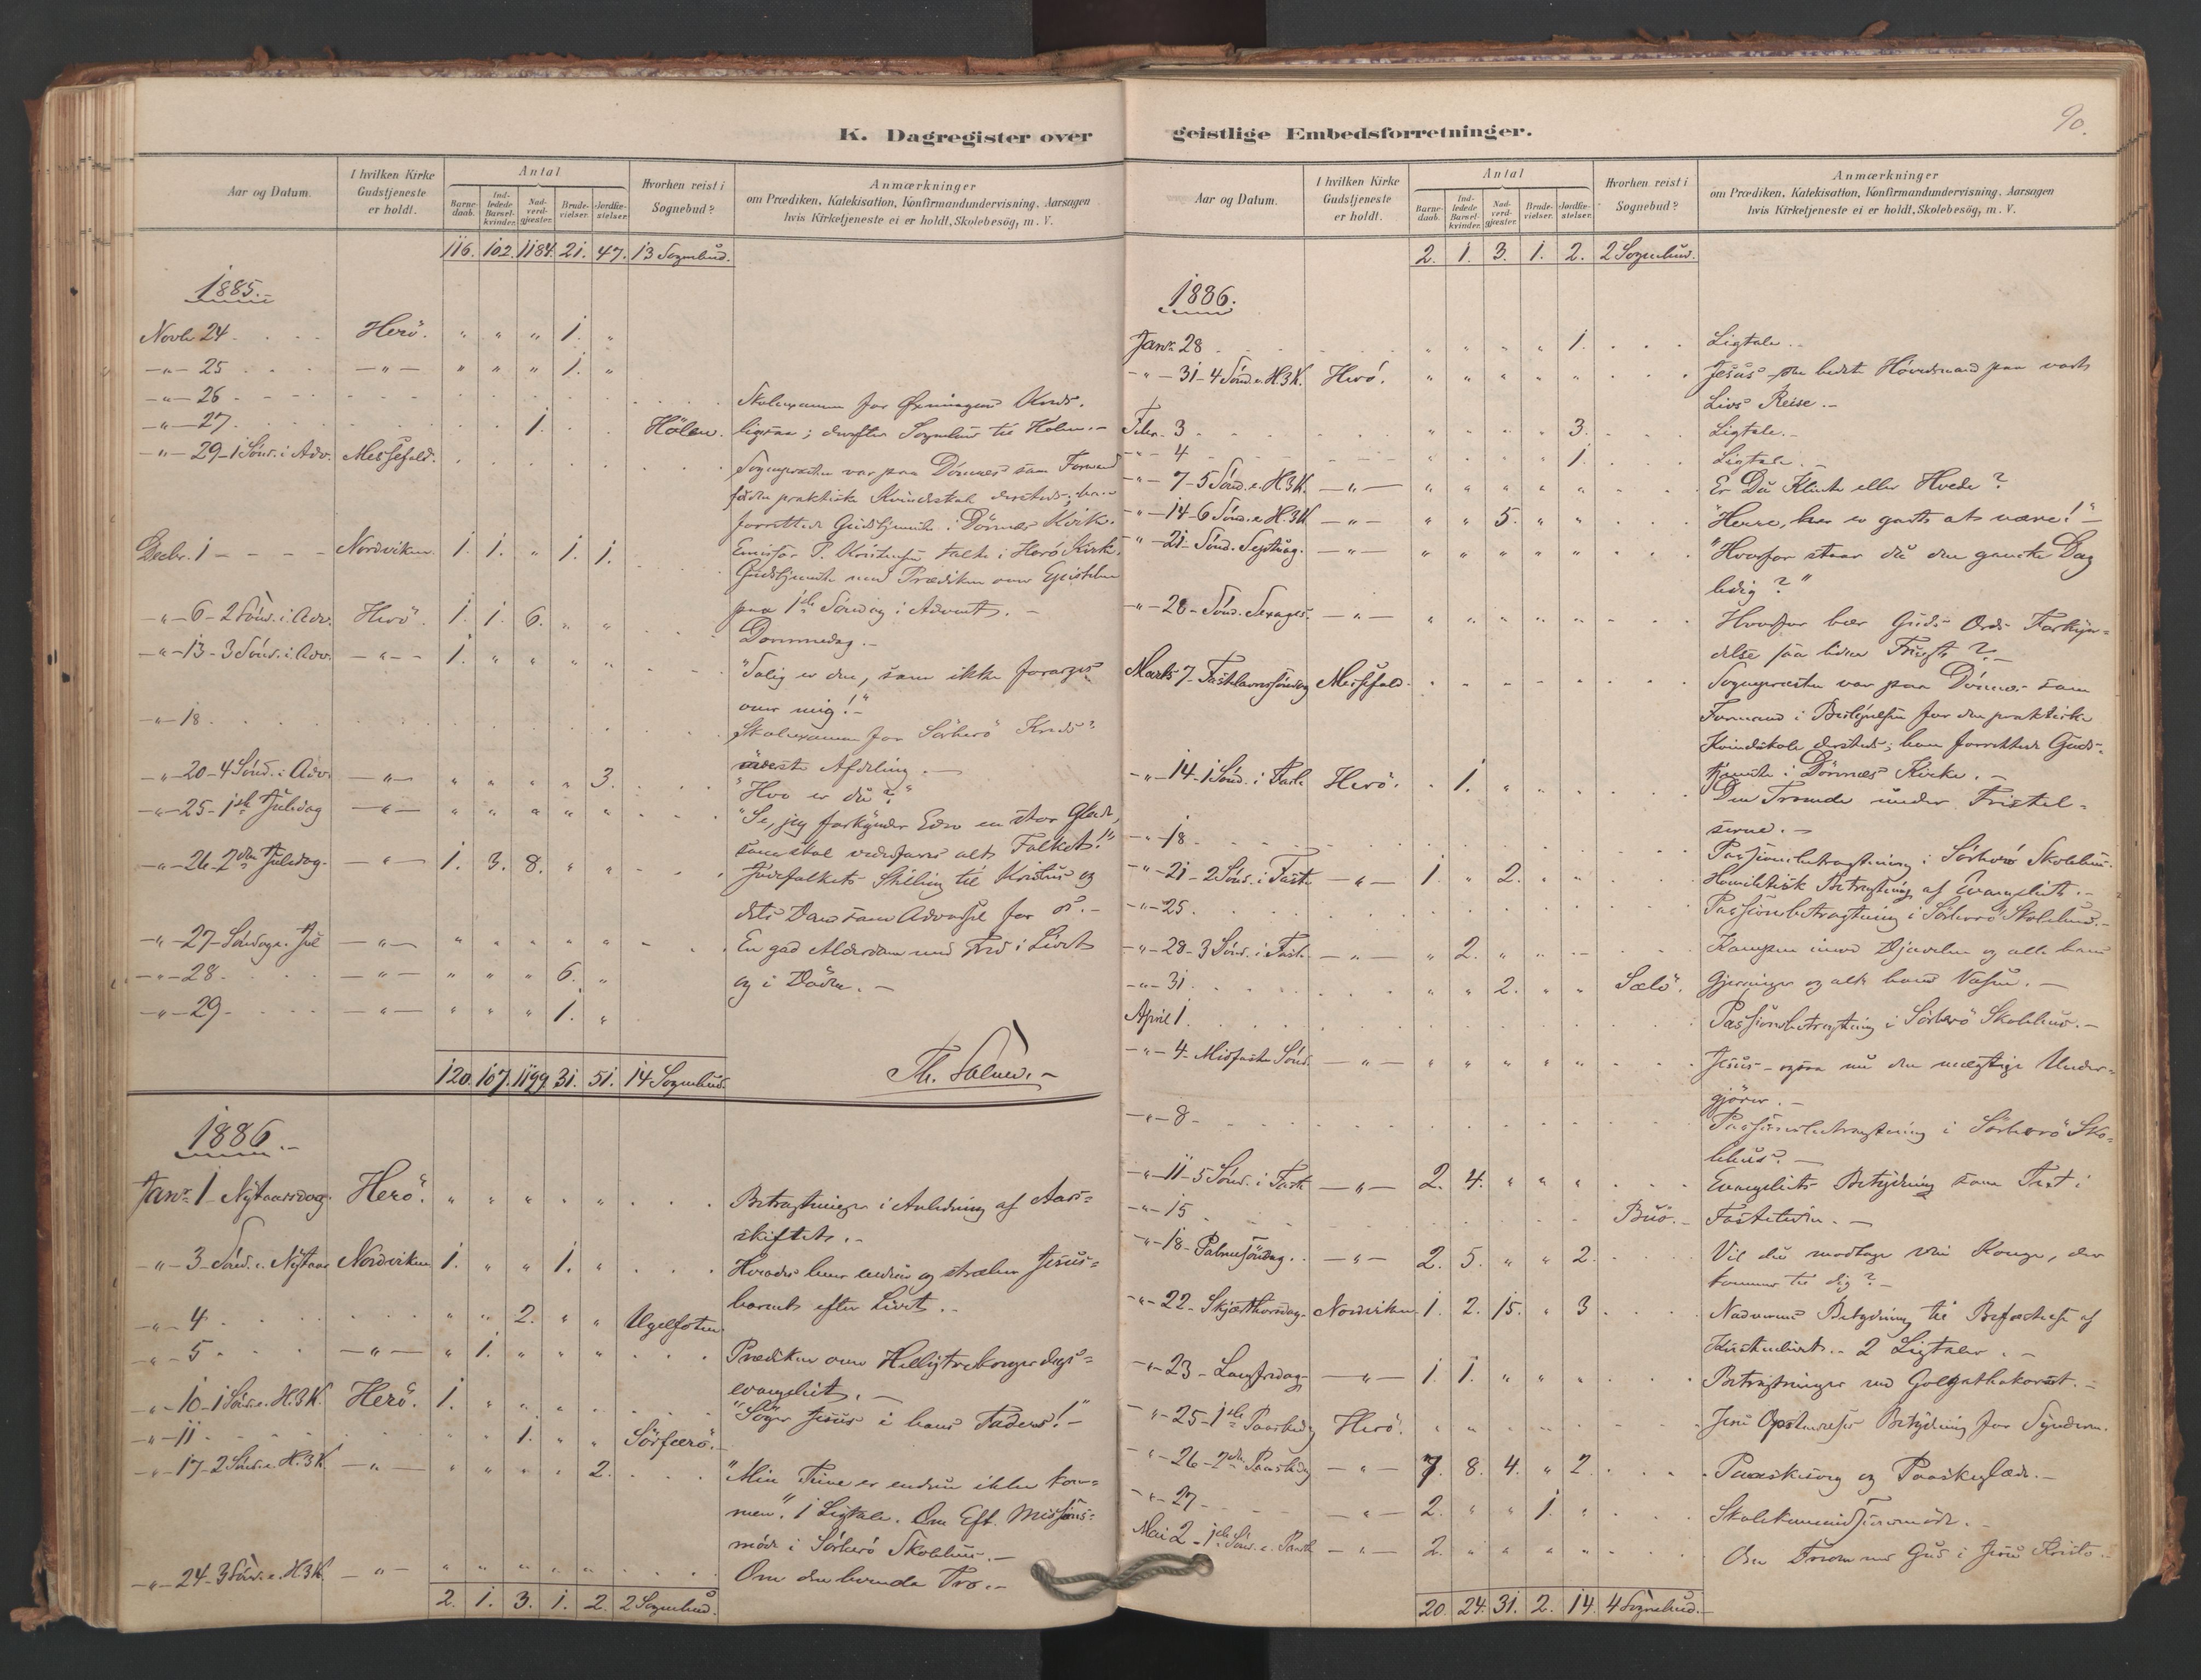 90.
K. Dagregister over
Aar og Datum.
I hvilken Kirke Gudstjeneste er holdt.
Antal
Barne-daab.
Ind-ledede Barsel-kvinder.
Nad-verd-gjester.
Brude-vielser.
Jordfæ-stelser.
Hvorhen reist i Sognebud?
Anmærkninger
om Prædiken, Katekisation, Konfirmandundervisning, Aarsagen
hvis Kirketjeneste ei er holdt, Skolebesög, m. V.
116. 102. 1184. 21. 47. 13 Sognebud.
1885.-
Novb 24 Herö. " " " 1. "
-"- 25 -"- " " " 1. "
-"- 26 Skoleexamen for Kreds.
-"- 27 1. Hölen. ligesaa; derefter Sognebud til Hölen.-
-"- 29-1 Sönd. i Adv. Messefald. Sognepresten var paa Dönnes som Formand
for den praktiske Kvindeskole dersteds; han
forrettede Gudstjeneste i Dönnes Kirke.
Decbr. 1 - Nordviken 1. 1. " 1. 1. Emissær P. Kristensen talte i Herö Kirke.
Gudstjeneste med Prædiken over Epistelen
paa 1ste Söndag i Advent.-
-"- 6-2 Sönd. i Adv. Herö. 1. 1. 6. " " Dommedag.-
-"- 13-3 Sönd. i Adv. -"- 1. " " " " "Salig er den, som ikke forarges
over mig!"
-"- 18 Skoleexamen for Sörherö Kreds
Afdeling.-
-"- 20-4 Sönd. i Adv. -"- " " " " 3. "Hvo er du?"
-"- 25-1ste Juledag -"- " " " " " "Se, jeg forkynder Eder en stor Glæde,
som skal vederfares alt Folket!"
-"- 26-2den Juledag. -"- 1. 3. 8. " " Jödefolkets Stilling til Kristus og
dets Dom som Advarsel for os.-
-"- 27-Söndag e. Jul -"- " " " " " En god Alderdom med Fred i Livet
-"- 28 -"- " " " 6. " og i Döden.-
-"- 29 -"- " " " 1. "
120. 107. 1199. 31. 51. 14 Sognebud.
1886.-
Janr. 1 Nytaarsdag. Herö. " " " " " Betragtninger i Anledning af Aars=
skiftet.-
-"- 3 Sönd. e. Nytaar Nordviken 1. " " 1. " Herodes lever endnu og stræber Jesus=
barnet efter Livet.-
-"- 4 " " 2. " " Ugelfoten
-"- 5 -"- " 1. " " " Prædiken over Helligtrekongersdags=
evangeliet.-
-"- 10-1 Sön. e. H.3K. Herö. 1. " " " " "Söger Jesus i hans Faders!"-
-"- 11 1. " " Sörfærö.
-"- 17-2 Sön. e. H.3K. -"- " " " " 2. "Min Time er endnu ikke kom=
men". 1 Ligtale. Om Eft. Missions=
möde i Sörherö Skolehus.-
-"- 24-3 Sön. e. H3K. -"- " " " " " Om den levende Tro.-
2. 1. 3. 1. 2. 2 Sognebud.
geistlige Embedsforretninger.
Aar og Datum.
I hvilken Kirke Gudstjeneste er holdt.
Antal
Barne-daab.
Ind-ledede Barsel-kvinder.
Nad-verd-gjester.
Brude-vielser.
Jordfæ-stelser.
Hvorhen reist i Sognebud?
Anmærkninger
om Prædiken, Katekisation, Konfirmandundervisning, Aarsagen
hvis Kirketjeneste ei er holdt, Skolebesög, m. V.
2. 1. 3. 1. 2. 2 Sognebud.
1886.
Janr. 28 " " " " 1. Ligtale.-
-"- 31-4 Sönd. e. H3K. Herö. " " " " " Jesus - den bedste Hövedsmand paa vort
Livs Reise.-
Febr. 3 " " " " 3. Ligtale.-
-"- 4 1. Ligtale.-
-"- 7-5 Sönd. e. H3K. -"- " " " " " Er Du Klinte eller Hvede?
-"- 14-6 Sönd. e. H.3K -"- " " 5. " " "Herre, her er godt at være!"-
-"- 21-Sönd. Septuag. -"- " " " " " "Hvorfor staar du den ganske Dag
ledig?"
-"- 28-Sönd. Sexages. -"- " " " " " Hvorfor bær Guds Ords Forkyn=
delse saa liden Frugt?-
Marts 7-Fastelavnssöndag Messefald. Sognepresten var paa Dönnes som
Formand i Bestyrelsen for den praktiske
Kvindeskole dersteds; han forrettede Guds=
tjeneste i Dönnæs Kirke.-
-"- 14-1 Sönd. i Faste Herö. 1. " Den Troende under Fristel=
serne.-
-"- 18 Passionsbetragtning i Sörherö Skolehus.
-"- 21-2 Sönd. i Faste -"- 1. " 2. " " Homiletisk Betragtning af Evangeliet.-
-"- 25 Passionsbetragtning i Sörherö Skolehus.-
-"- 28-3 Sönd. i Faste -"- " 2. " " Kampen imod Djævelen og alle hans
-"- 31 " " 2. " " Sælö. Gjerninger og alt hans Væsen.-
April 1 Passionsbetragtning i Sörherö Skolehus.-
-"- 4-Midfaste Sönd. -"- " " " " " Jesus - ogsaa nu den mægtige Under=
gjörer.-
-"- 8 Passionsbetragtning i Sörherö Sko=
lehus.-
-"- 11-5 Sönd. i Faste -"- 2. 4. " " " Evangeliets Betydning som Trøst i
-"- 15 Buö.- Fastetiden.-
-"- 18-Palmesöndag. -"- 2. 5. " " 2. Vil du modtage din Konge, der
kommer til dig?-
-"- 22-Skjærthorsdag- Nordviken. 1. 2. 15. " 3 Nadverens Betydning til Befæstelse af
Kristenlivet.- 2 Ligtaler.-
-"- 23-Langfredag- -"- 1. 1. " " " Betragtninger ved Golgathakorset.-
-"- 25-1ste Paaskedag Herö. " " " " " Jesu Opstandelses Betydning for Synderen.
-"- 26-2den Paaskedag -"- 7. 8. 4. " 2. Paaskesorg og Paaskeglæde.-
-"- 27 -"- 2. " " 1. " Skolekommissionsmöde.-
Mai 2-1ste Sönd. e. Paaske -"- 2. " " " " Om Fred med Gud i Jesu Kristo.-
20. 24. 31. 2. 14. 4 Sognebud.-